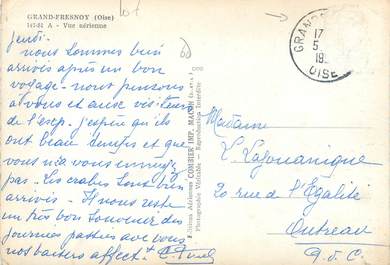 GRAND-FRESNOY (Oise)
147-82 A - Vue aérienne
Jeudi -
nous sommes bien
arrivés après un bon
voyage - nous pensons
à vous et aux visiteurs
de j'espère qu'ils
ont beau temps et que
vous ne vous ennuyez
pas. Les crabes sont bien
arrivés. Il nous reste
un très bon souvenir des
journées passées avec vous
nos baisers affect.
Editions Aériennes COMBIER IMP. MACON
Photographie Véritable - Reproduction Interdite
GRAND
17
5
19
OISE
Madame
L. Lafouanique
20 rue de l'Egalité
Outreau
P.d.C.